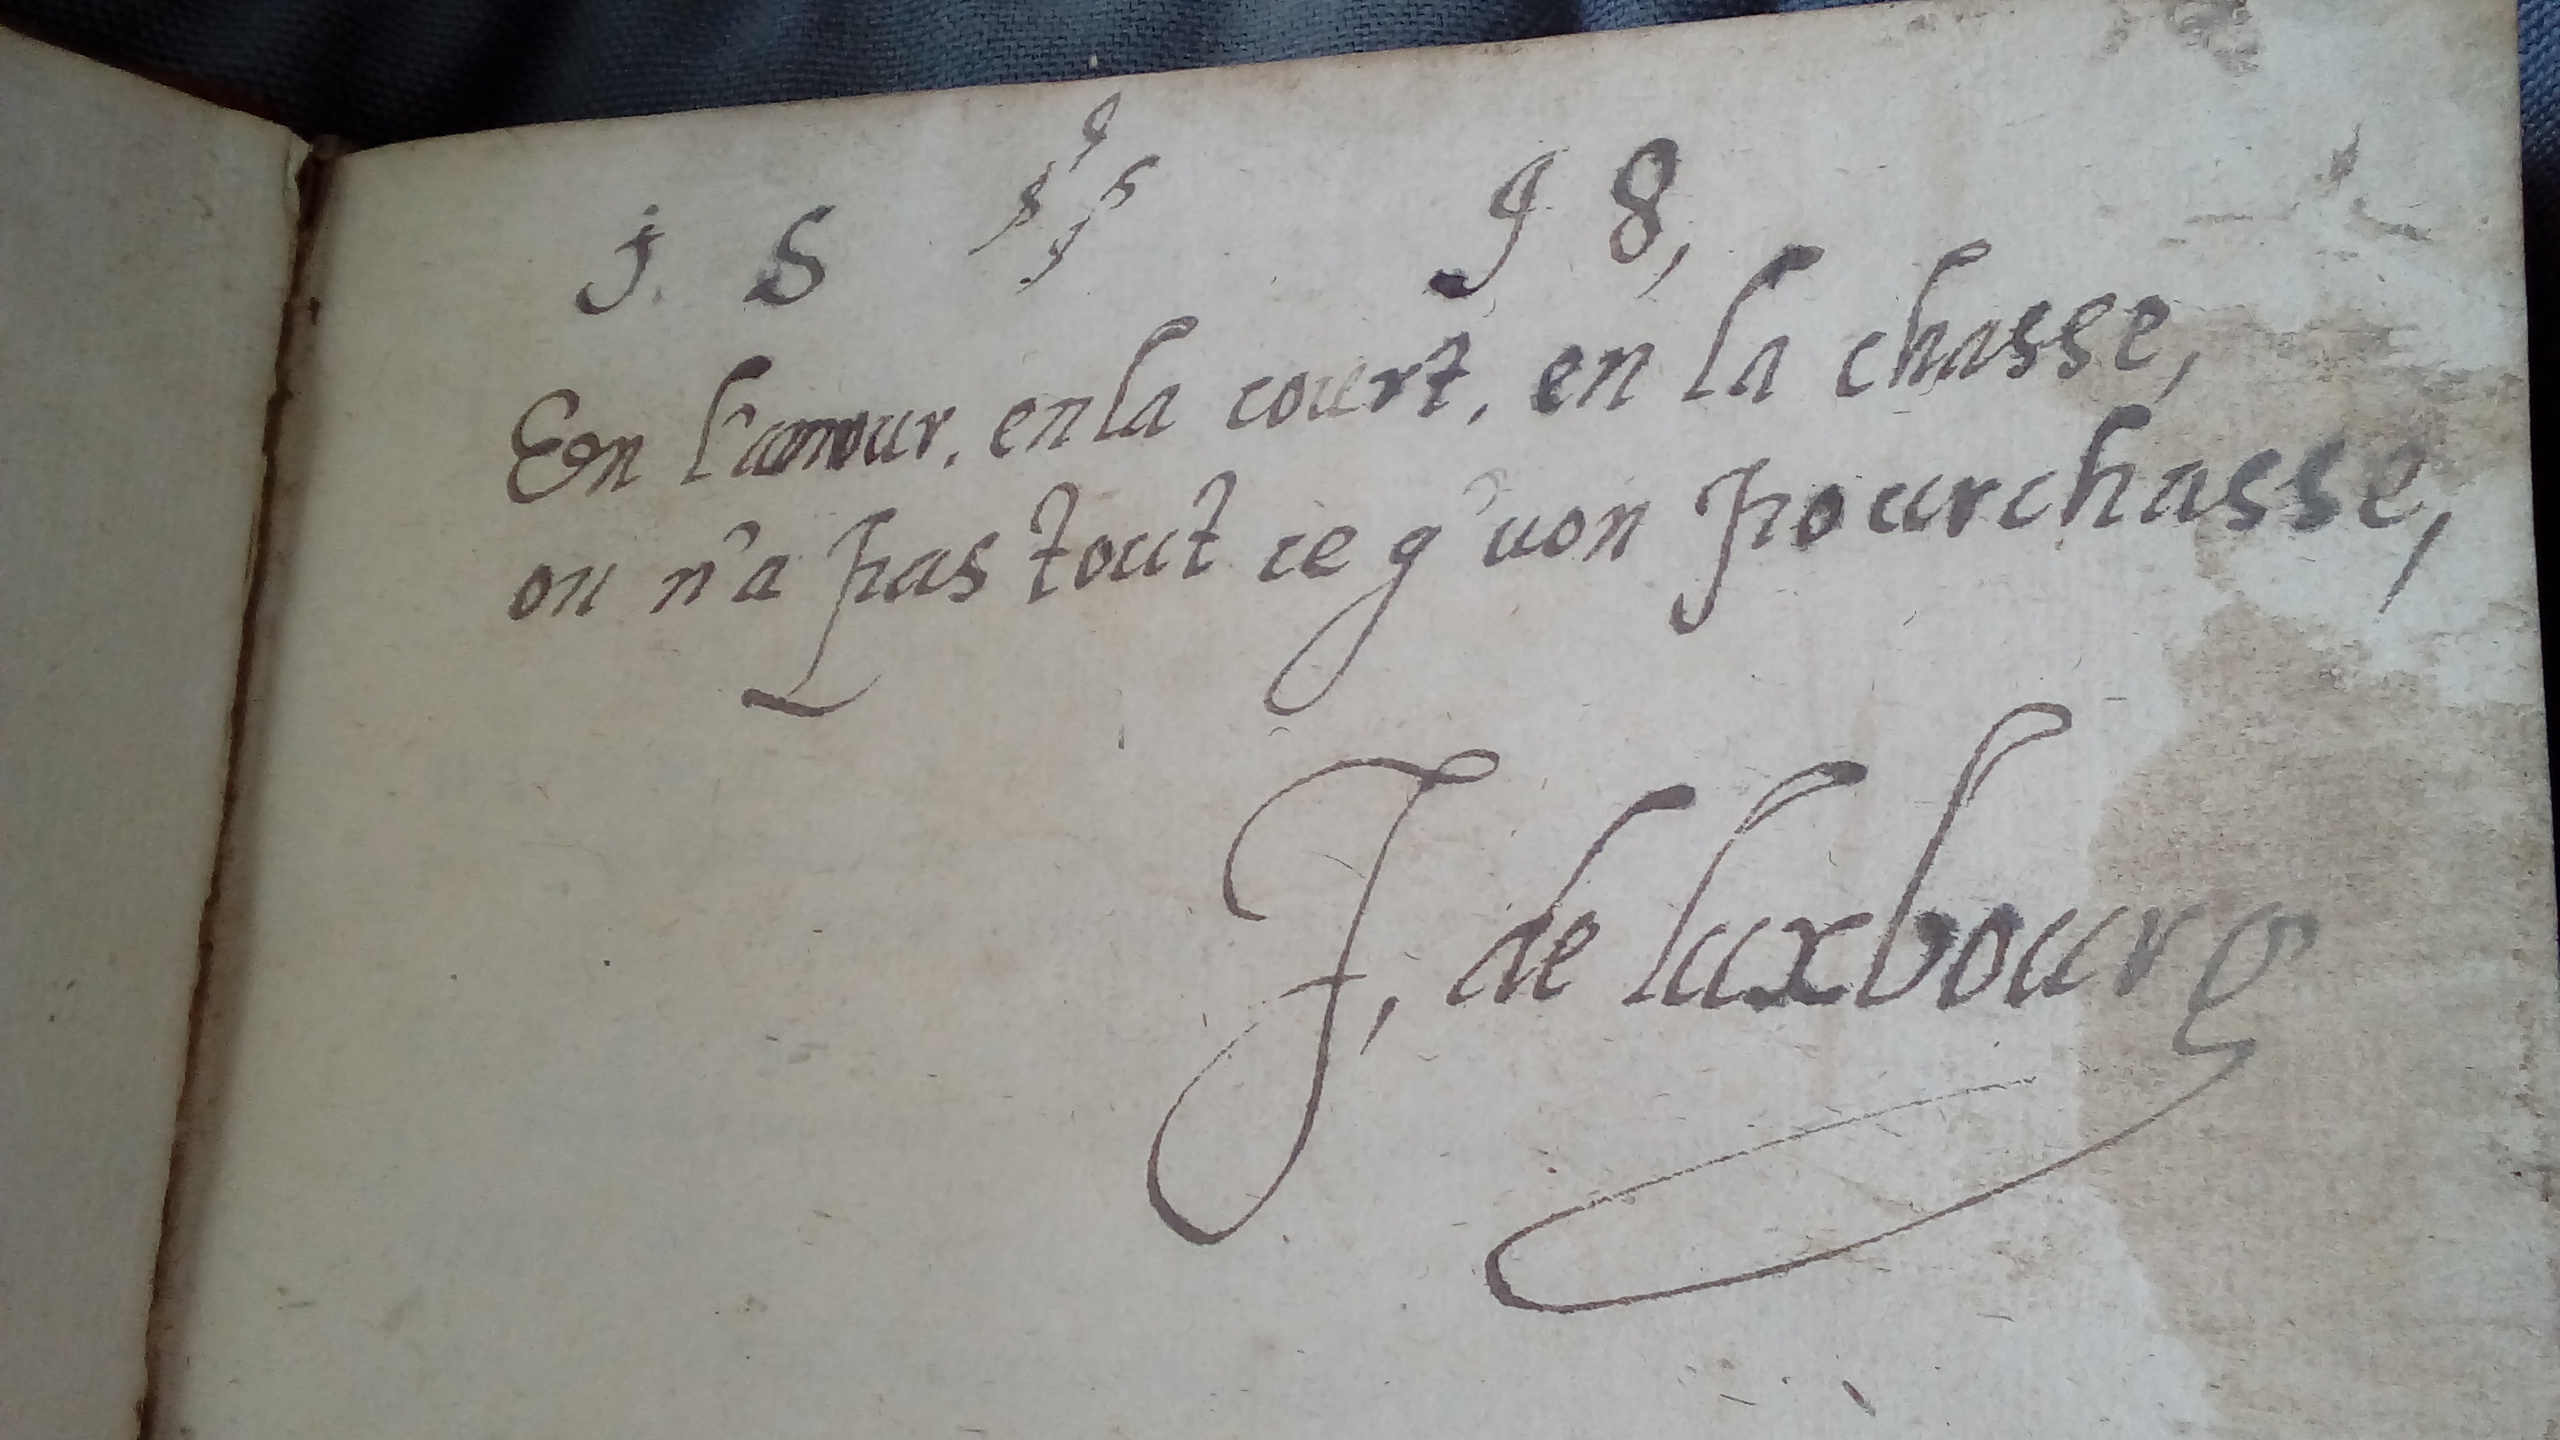 j. S 98,
En l'amour, en la court, en la chasse,
on n'a pas tout ce q'uon pourchasse,
J, de luxbourg